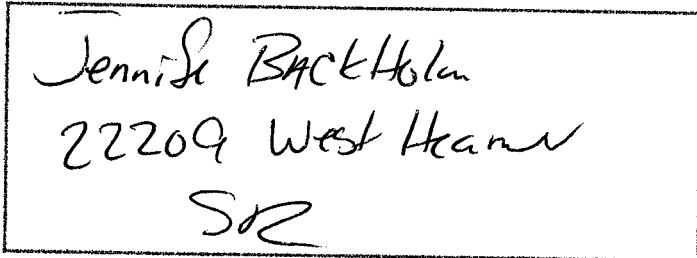 Jennife BACKHolm
22209 West Hearn
SR